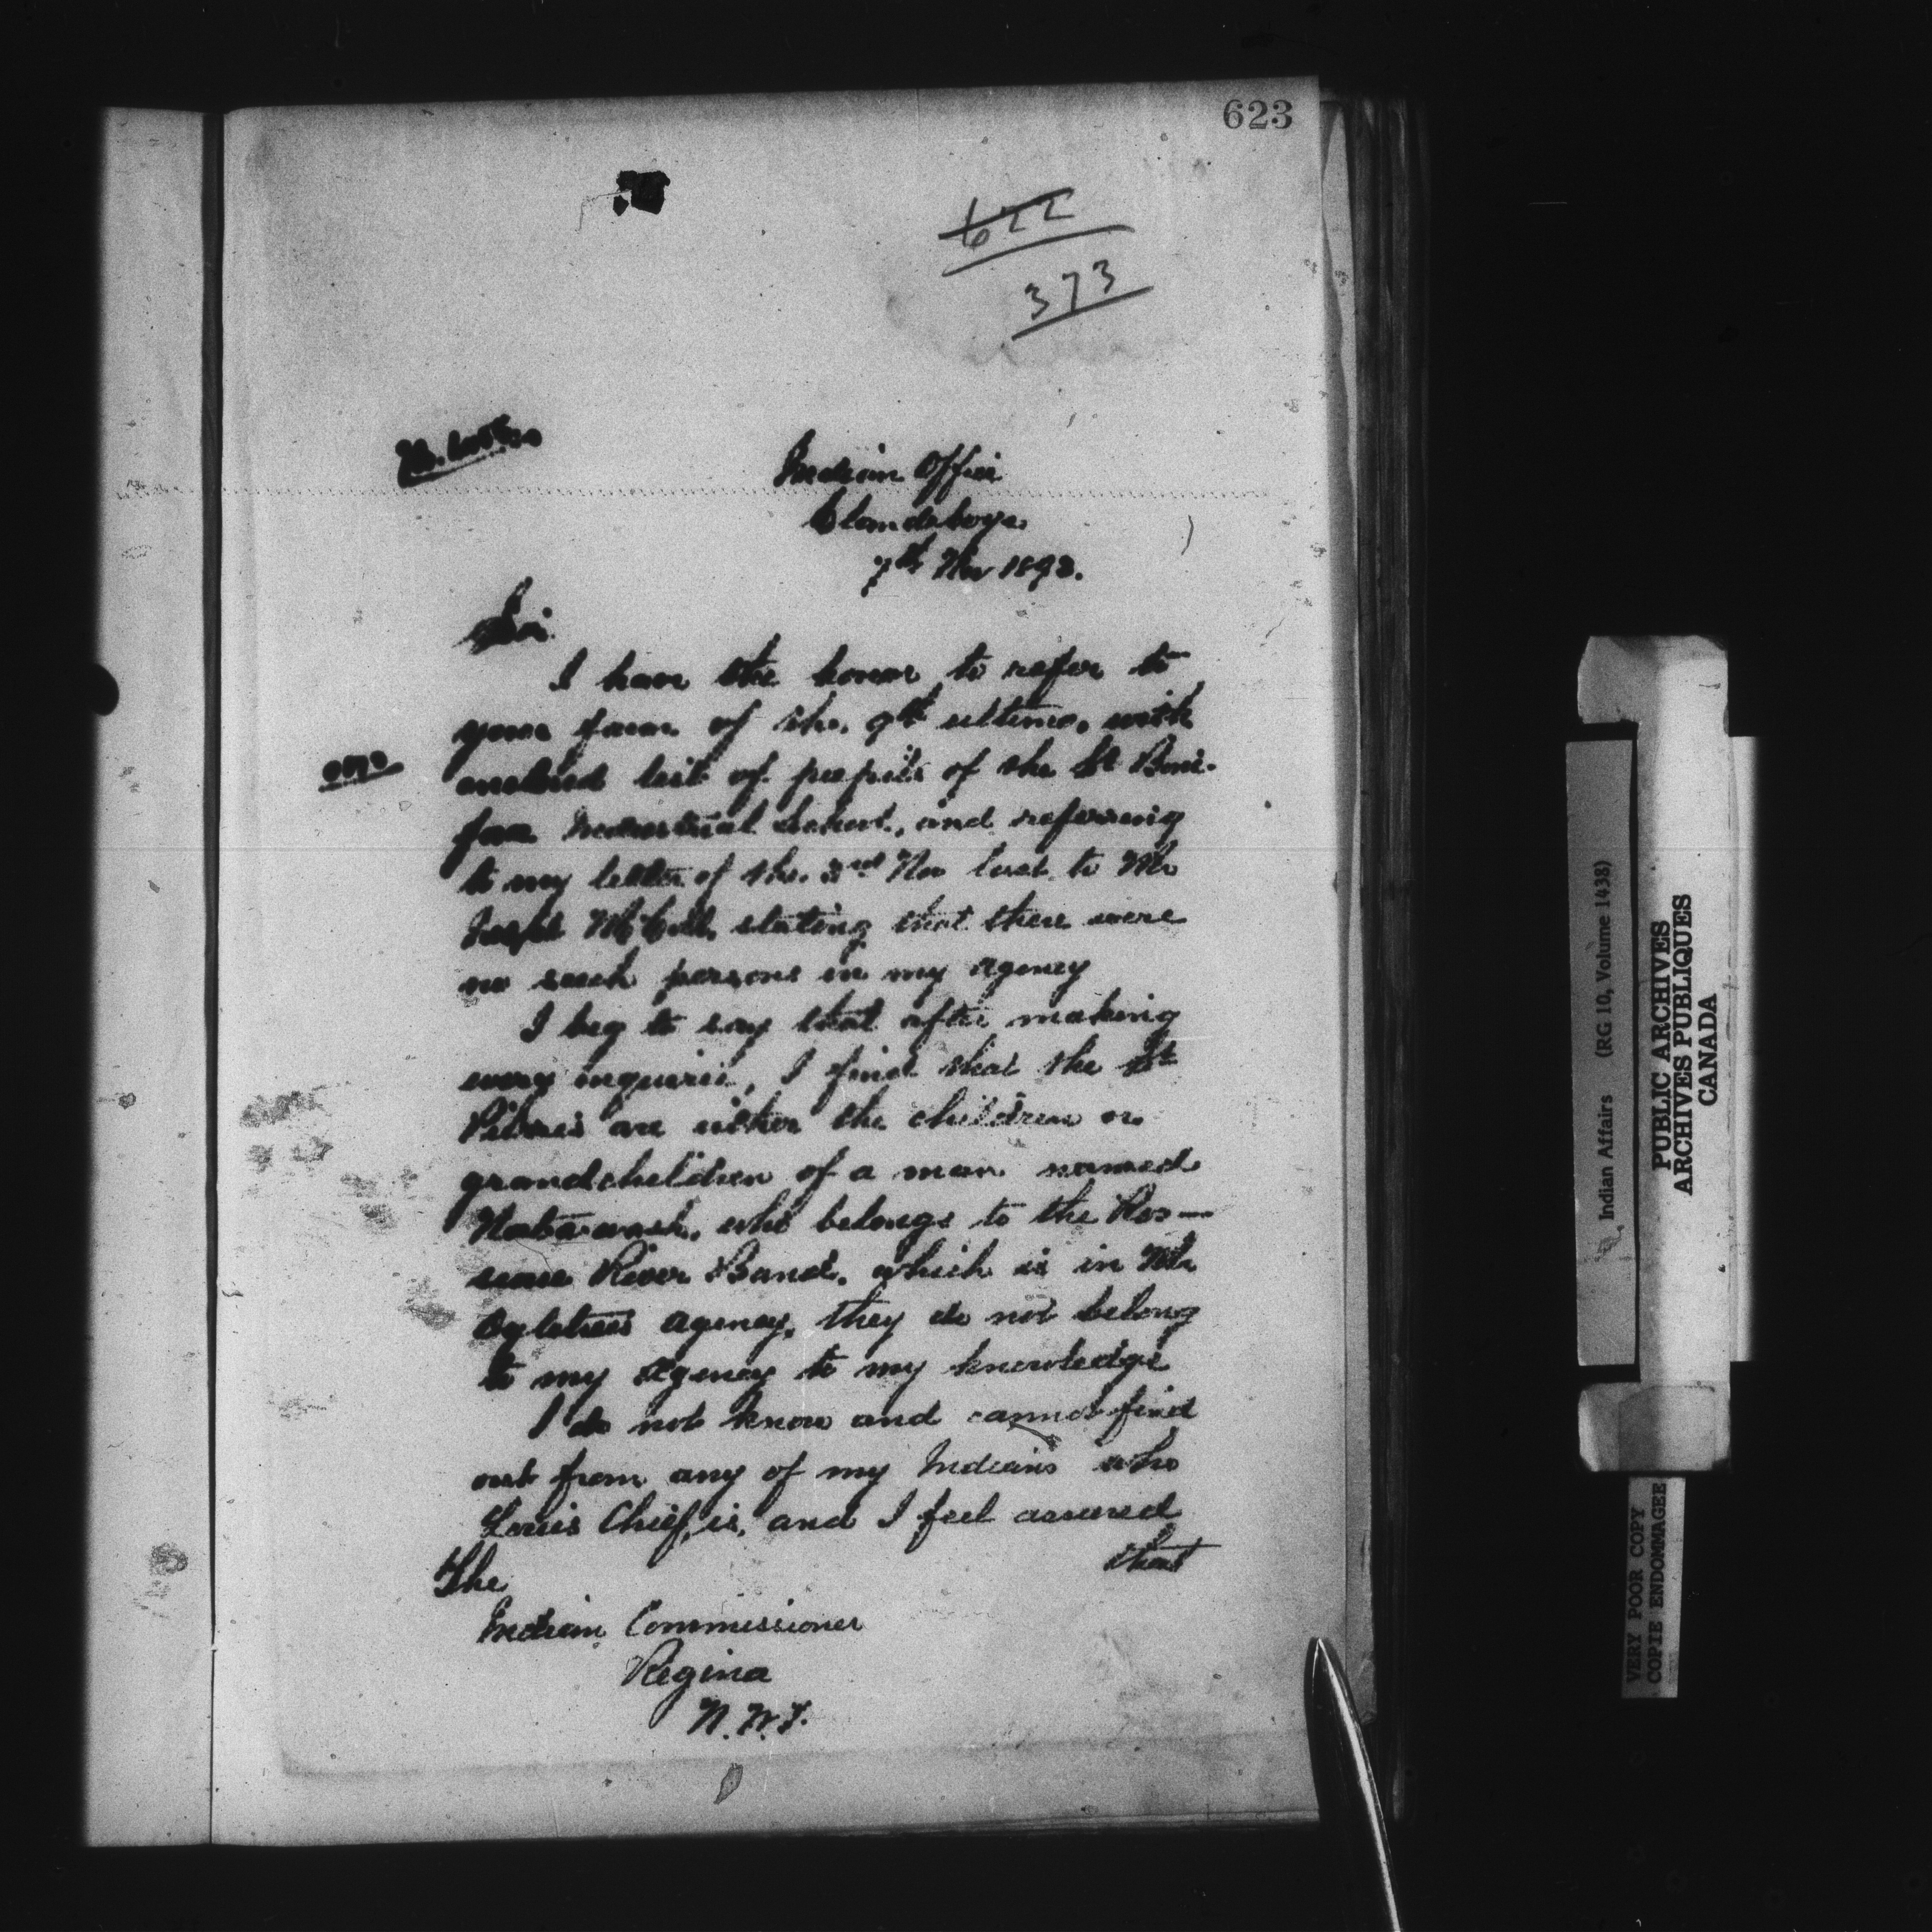 623
622
373
Indian Office
Clandeboye
7th Nov 1893.
Sir
I have the honor to refer to
your favor of the 9th ultimo, with
enclosed list of pupils of the St Boni-
face Industrial School, and referring
to my letter of the 3rd Nov last to Mr
Inspt McColl, stating that there were
no such persons in my agency
I beg to say that after making
every inquirie, I find that the St
are either the children or
grandchildren of a man named
who belongs to the Ros-
seau River Band, which is in Mr
Ogletrees agency, they do not belong
to my Agency to my knowledge
I do not know and cannot find
out from any of my Indians who
Louis Chief, is, and I feel assured
that
The
Indian Commissioner
Regina
N.W.T.
Indian Affairs (RG 10, Volume 1438)
PUBLIC ARCHIVES
ARCHIVES PUBLIQUES
CANADA
VERY POOR COPY
COPIE ENDOMMAGEE